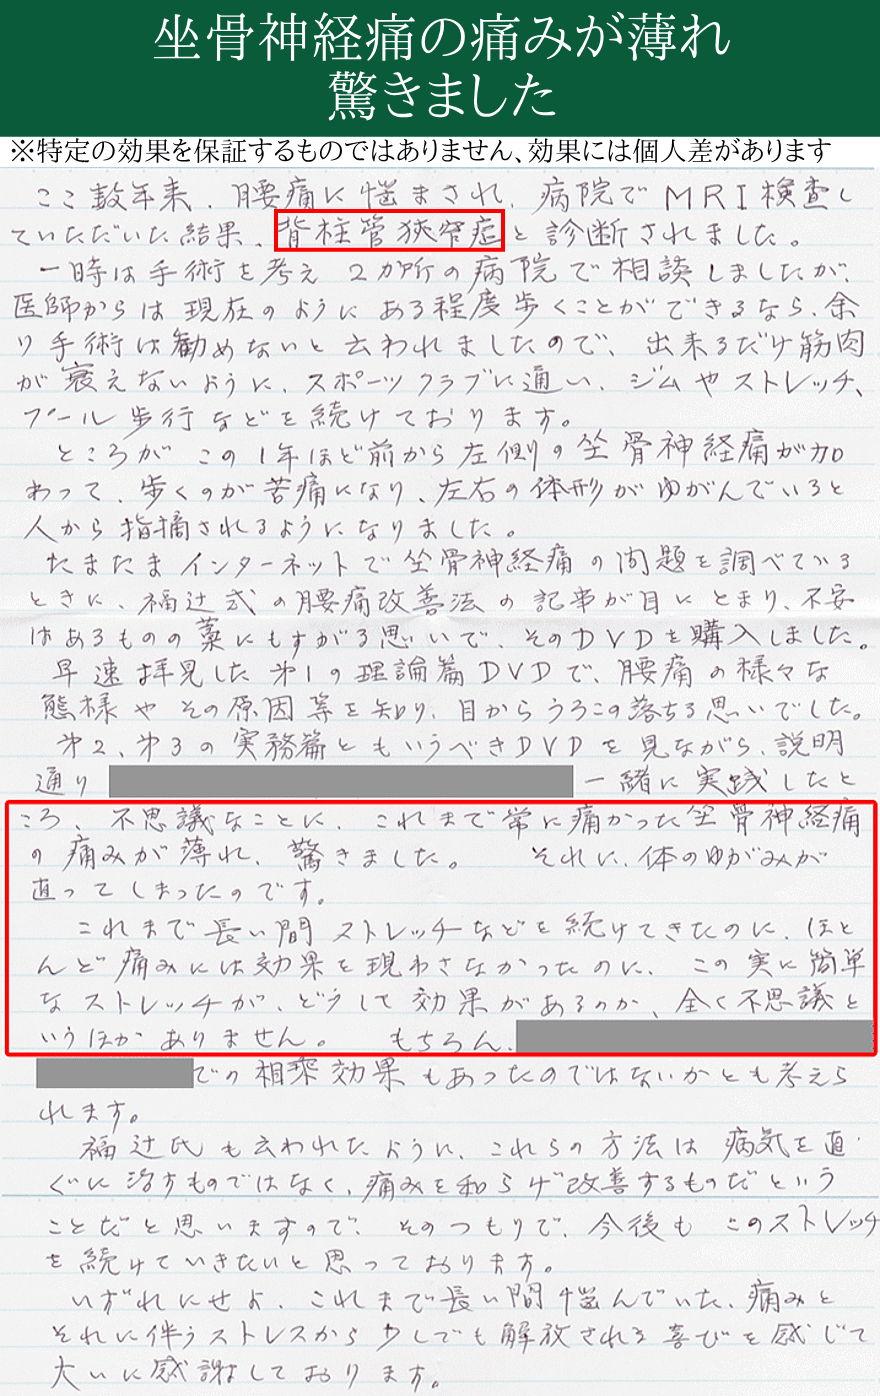 坐骨神経痛の痛みが薄れ
驚きました
※特定の効果を保証するものではありません、効果には個人差があります
ここ数年来、腰痛に悩まされ、病院でMRI検査し
ていただいた結果、脊柱管狭窄症と診断されました。
一時は手術を考え2か所の病院で相談しましたが、
医師からは現在のようにある程度歩くことができるなら、余
り手術は勧めないと云われましたので、出来るだけ筋肉
が衰えないように、スポーツクラブに通い、ジムやストレッチ、
プール歩行などを続けております。
ところがこの1年ほど前から左側の坐骨神経痛が加
わって、歩くのが苦痛になり、左右の体形がゆがんでいると
人から指摘されるようになりました。
たまたまインターネットで坐骨神経痛の問題を調べている
ときに、福辻式の腰痛改善法の記事が目にとまり、不安
はあるものの藁にもすがる思いで、そのDVDを購入しました。
早速拝見した第1の理論篇DVDで、腰痛の様々な
態様やその原因等を知り、目からうろこの落ちる思いでした。
第2、第3の実務篇ともいうべきDVDを見ながら、説明
通り 一緒に実践したと
ころ、不思議なことに、これまで常に痛かった坐骨神経痛
の痛みが薄れ、驚きました。 それに、体のゆがみが
直ってしまったのです。
これまで長い間ストレッチなどを続けてきたのに、ほと
んど痛みには効果を現わさなかったのに、この実に簡単
なストレッチが、どうして効果があるのか、全く不思議と
いうほかありません。 もちろん、
での相乗効果もあったのではないかとも考えら
れます。
福辻氏も云われたように、これらの方法は病気を直
ぐに治すものではなく、痛みを和らげ改善するものだという
ことだと思いますので、そのつもりで、今後もこのストレッチ
を続けていきたいと思っております。
いずれにせよ、これまで長い間悩んでいた、痛みと
それに伴うストレスから少しでも解放される喜びを感じて
大いに感謝しております。